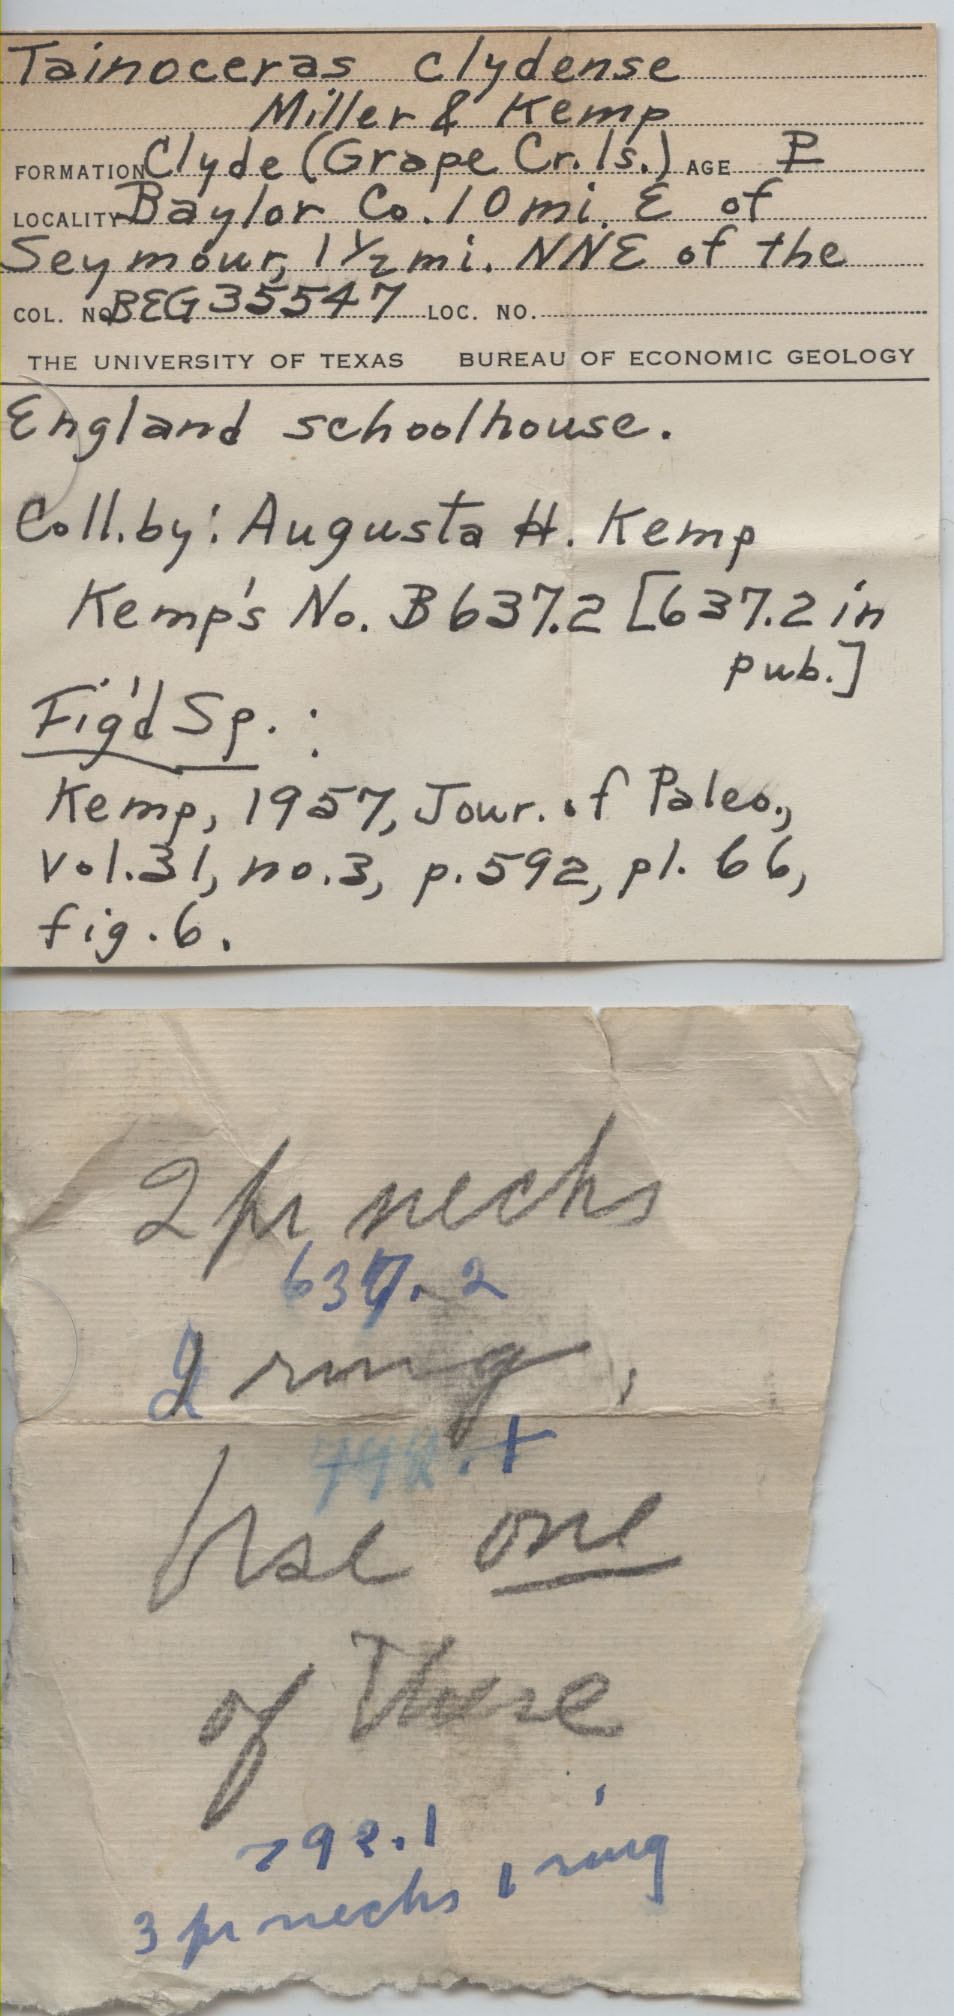 Tainoceras clydense
Miller & Kemp
FORMATION Clyde (Grape Cr. ls.) AGE P
LOCALITY Baylor Co. 10 mi. E of
Seymour, 1½ mi. NNE of the
COL. NO. BEG 35547 LOC. NO.
THE UNIVERSITY OF TEXAS BUREAU OF ECONOMIC GEOLOGY
England schoolhouse.
Coll. by: Augusta H. Kemp
Kemp's No. B637.2 [637.2 in
pub.]
Fig'd Sp. :
Kemp, 1957, Jour. of Paleo.,
Vol. 31, no. 3, p. 592, pl. 66,
fig. 6.
2 pr necks
637.2
2 ring
Use one
of these
792.1
3 pr necks 1 ring